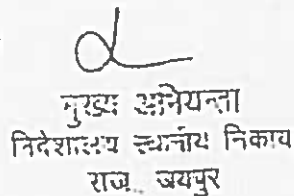 मुख्य अभियन्ता
निदेशालय स्थानीय निकाय
राज. जयपुर